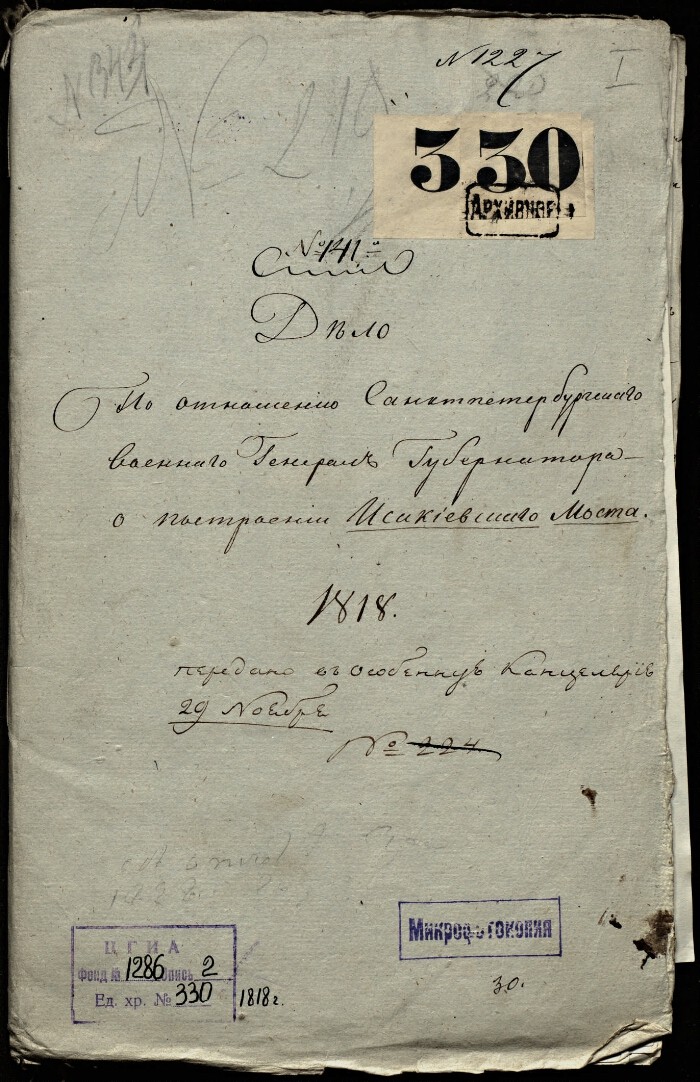 N 1227
I
N 343
N 210
330
АРХИВНОЕ
№ 141
Дѣло
По отношению Санктпетербургскаго
военнаго Генерал Губернатора
о построении Исакіевскаго Моста.
1818.
передано въ особенную Канцелярію
29 Ноября
№ 224
Микрофотокопия
ЦГИА
Фонд № 1286 опись 2
Ед. хр. № 330
1818 г.
30.